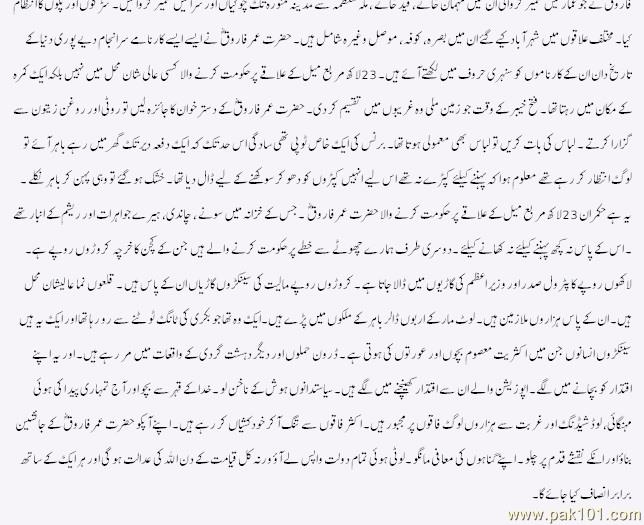 فاروقؓ نے جو عمارتیں تعمیر کروائی ان میں مہمان خانے، قید خانے، مکہ معظمہ سے مدینہ منورہ تک چوکیاں اور سرائیں تعمیر کروائیں۔ سڑکوں اور پلوں کا انتظام
کیا۔ مختلف علاقوں میں شہر آباد کیے گئے ان میں بصرہ، کوفہ، موصل وغیرہ شامل ہیں۔ حضرت عمر فاروقؓ نے ایسے ایسے کارنامے سرانجام دیے پوری دنیا کے
تاریخ دان ان کے کارناموں کو سنہری حروف میں لکھتے آئے ہیں۔ 23 لاکھ مربع میل کے علاقے پر حکومت کرنے والا کسی عالی شان محل میں نہیں بلکہ ایک کمرہ
کے مکان میں رہتا تھا۔ فتح خیبر کے وقت جو زمین ملی وہ غریبوں میں تقسیم کر دی۔ حضرت عمر فاروقؓ کے دستر خوان کا جائزہ لیں تو روٹی اور روغن زیتون سے
گزارا کرتے۔ لباس کی بات کریں تو لباس بھی معمولی ہوتا تھا۔ برنس کی ایک خاص ٹوپی تھی سادگی اس حد تک کہ ایک دفعہ دیر تک گھر میں رہے باہر آئے تو
لوگ انتظار کر رہے تھے معلوم ہوا کہ پہننے کیلئے کپڑے نہ تھے اس لیے انہیں کپڑوں کو دھو کر سوکھنے کے لیے ڈال دیا تھا۔ خشک ہو گئے تو وہی پہن کر باہر نکلے۔
یہ ہے حکمران 23 لاکھ مربع میل کے علاقے پر حکومت کرنے والا حضرت عمر فاروقؓ۔ جس کے خزانہ میں سونے، چاندی، ہیرے جواہرات اور ریشم کے انبار تھے
۔ اس کے پاس نہ کچھ پہننے کیلئے نہ کھانے کیلئے۔ دوسری طرف ہمارے چھوٹے سے خطے پر حکومت کرنے والے ہیں جن کے کچن کا خرچہ کروڑوں روپے ہے۔
لاکھوں روپے کا پٹرول صدر اور وزیراعظم کی گاڑیوں میں ڈالا جاتا ہے۔ کروڑوں روپے مالیت کی سینکڑوں گاڑیاں ان کے پاس ہیں۔ قلعوں نما عالیشان محل
ہیں۔ ان کے پاس ہزاروں ملازمین ہیں۔ لوٹ مار کے اربوں ڈالر باہر کے ملکوں میں پڑے ہیں۔ ایک وہ تھا جو بکری کی ٹانگ ٹوٹنے سے رو رہا تھا اور ایک یہ ہیں
سینکڑوں انسانوں جن میں اکثریت معصوم بچوں اور عورتوں کی ہوتی ہے۔ ڈرون حملوں اور دیگر دہشت گردی کے واقعات میں مر رہے ہیں۔ اور یہ اپنے
اقتدار کو بچانے میں لگے۔ اپوزیشن والے ان سے اقتدار کھینچنے میں لگے ہیں۔ سیاستدانوں ہوش کے ناخن لو۔ خدا کے قہر سے بچو اور آج تمہاری پیدا کی ہوئی
مہنگائی، لوڈشیڈنگ اور غربت سے ہزاروں لوگ فاقوں پر مجبور ہیں۔ اکثر فاقوں سے تنگ آ کر خودکشیاں کر رہے ہیں۔ اپنے آپکو حضرت عمر فاروقؓ کے جانشین
بناؤ اور انکے نقشے قدم پر چلو۔ اپنے گناہوں کی معافی مانگو۔ لوٹی ہوئی تمام دولت واپس لے آؤ ورنہ کل قیامت کے دن اللہ کی عدالت ہو گی اور ہر ایک کے ساتھ
برابر انصاف کیا جائے گا۔
www.pak101.com